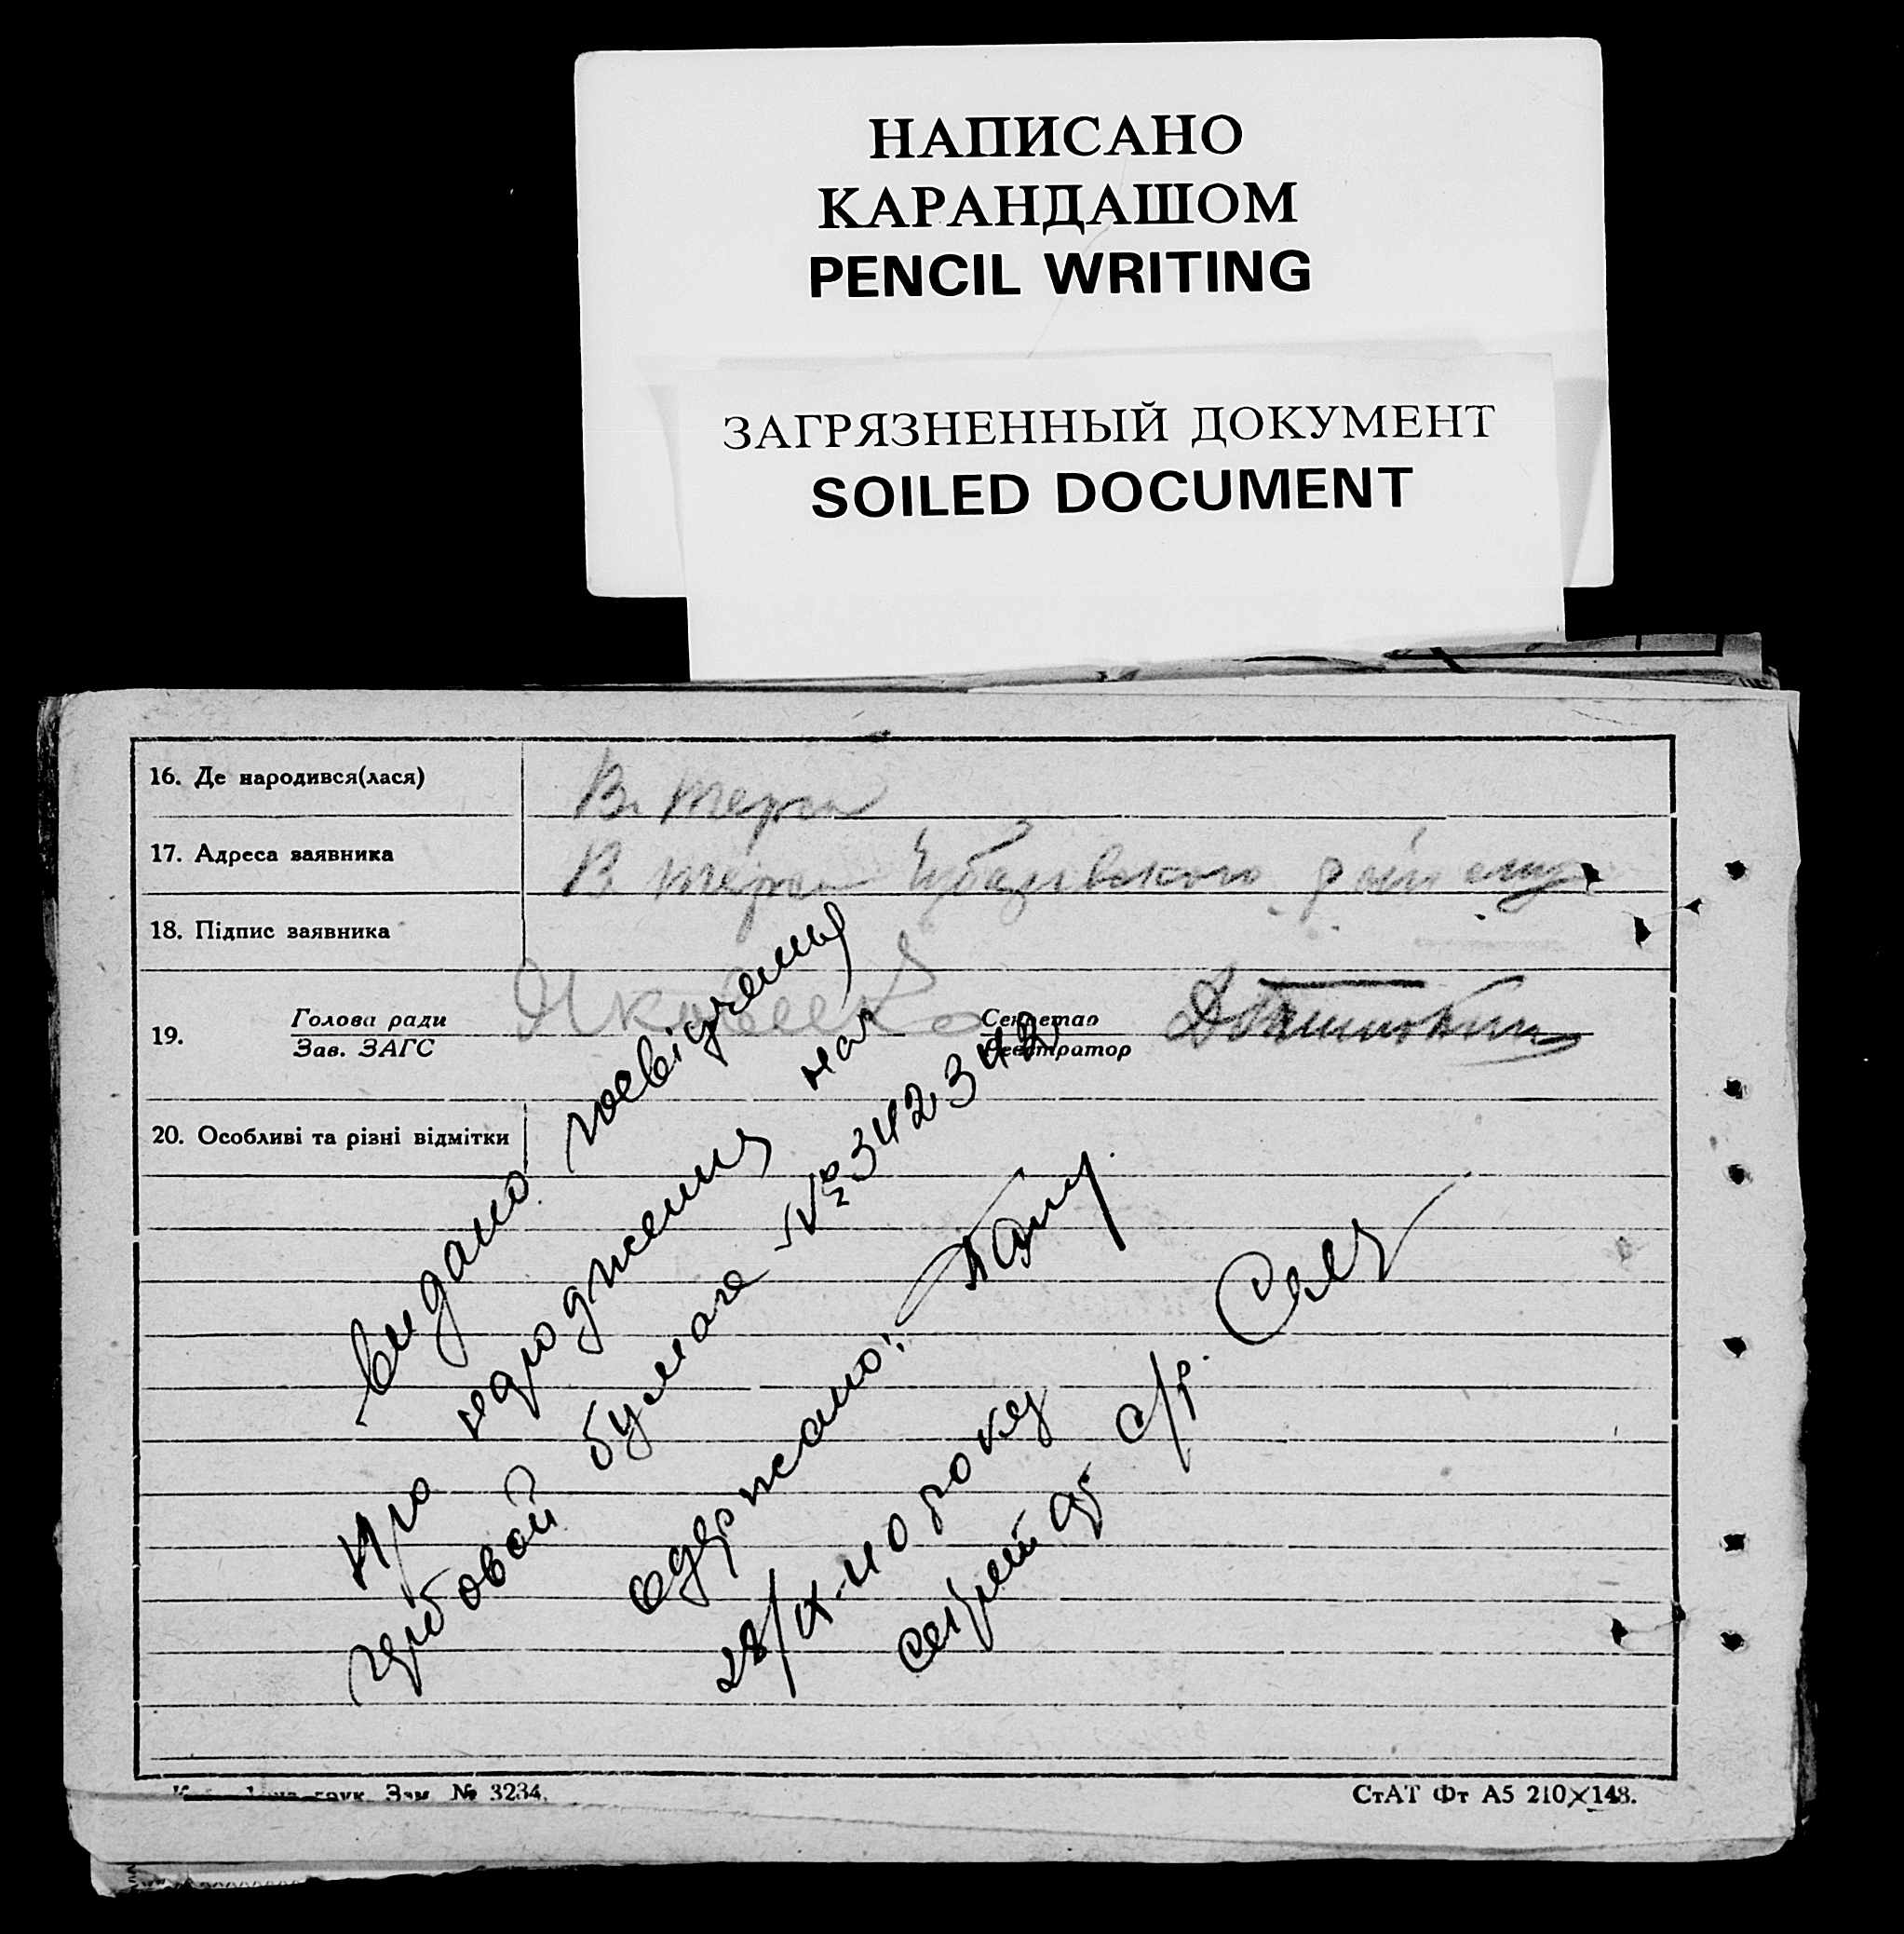 НАПИСАНО
КАРАНДАШОМ
PENCIL WRITING
ЗАГРЯЗНЕННЫЙ ДОКУМЕНТ
SOILED DOCUMENT
16. Де народився(лася)
17. Адреса заявника
В. Чубарівского району
18. Підпис заявника
19. Голова ради
Зав. ЗАГС
Яковенко
Секретар
Реєстратор
20. Особливі та різні відмітки
видано посвідчення
про народження на
гербовой бумаге №342342
одержано:
28/IX-40 року
секретар с/р.
Зам. № 3234.
СтАТ Фт А5 210×148.